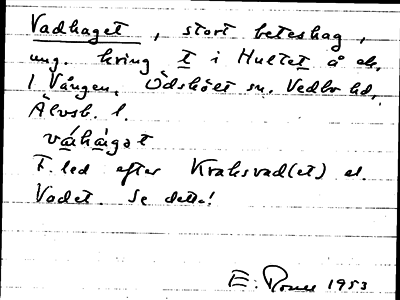 Vadhaget, stort beteshag,
ung. kring t i Hultet å ek.
1 Vången, Ödskölt sn. Vedbo hd,
Älvsb. l.
F. led efter Kraksvad(et) el.
Vadet. Se detta!
E. 1953